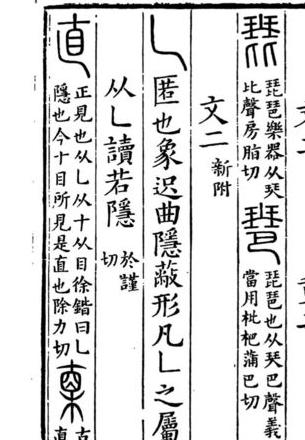 琵 琵琶樂器从珡
比聲房脂切
琶 琵琶也从珡巴聲義
當用枇杷蒲巴切
文二 新附
乚 匿也象迟曲隱蔽形凡乚之屬
从乚讀若隱 於謹
切
直 正見也从乚从十从目徐鍇曰乚
隱也今十目所見是直也除力切